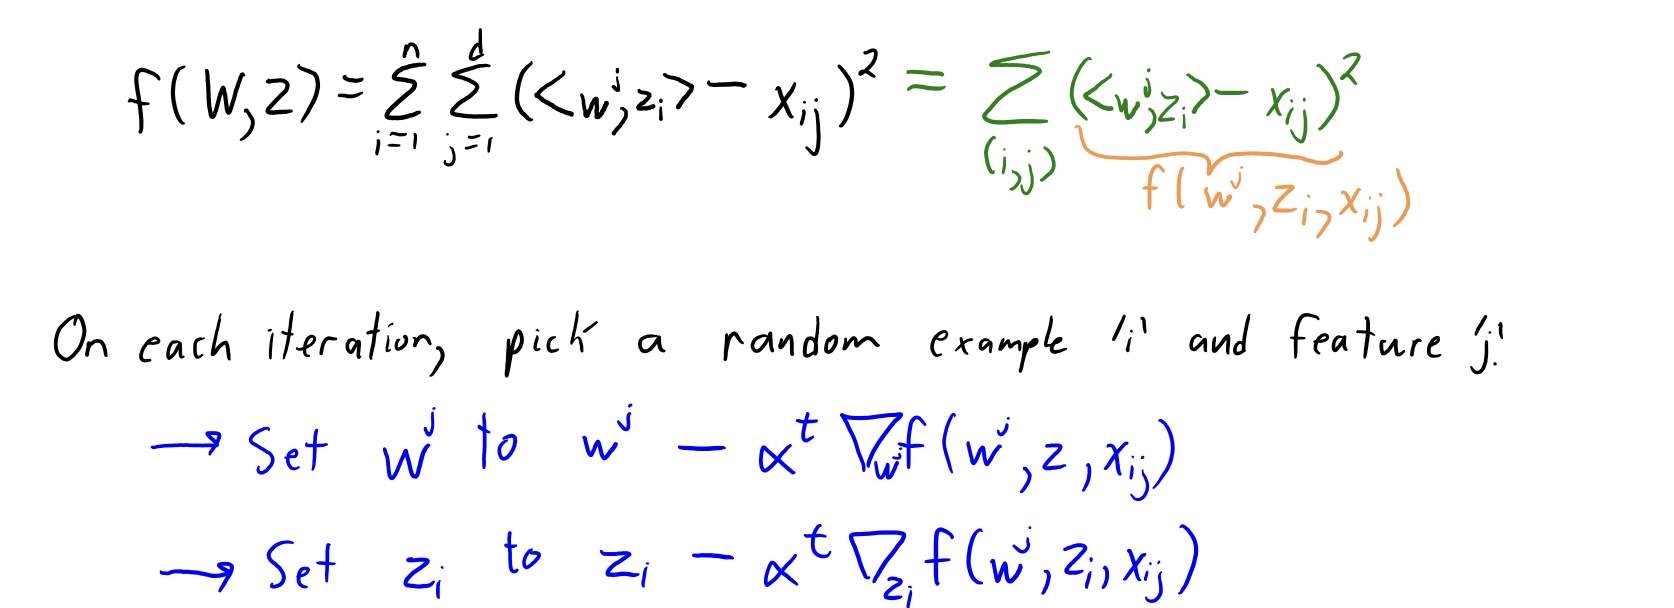 f(W,Z) = \sum_{i=1}^{n} \sum_{j=1}^{d} (<w^j, z_i> - x_{ij})^2 = \sum_{(i,j)} (<w^j, z_i> - x_{ij})^2
f(w^j, z_i, x_{ij})
On each iteration, pick a random example 'i' and feature 'j'.
→ Set w^j to w^j - α^t ∇_{w^j} f(w^j, z, x_{ij})
→ Set z_i to z_i - α^t ∇_{z_i} f(w^j, z_i, x_{ij})